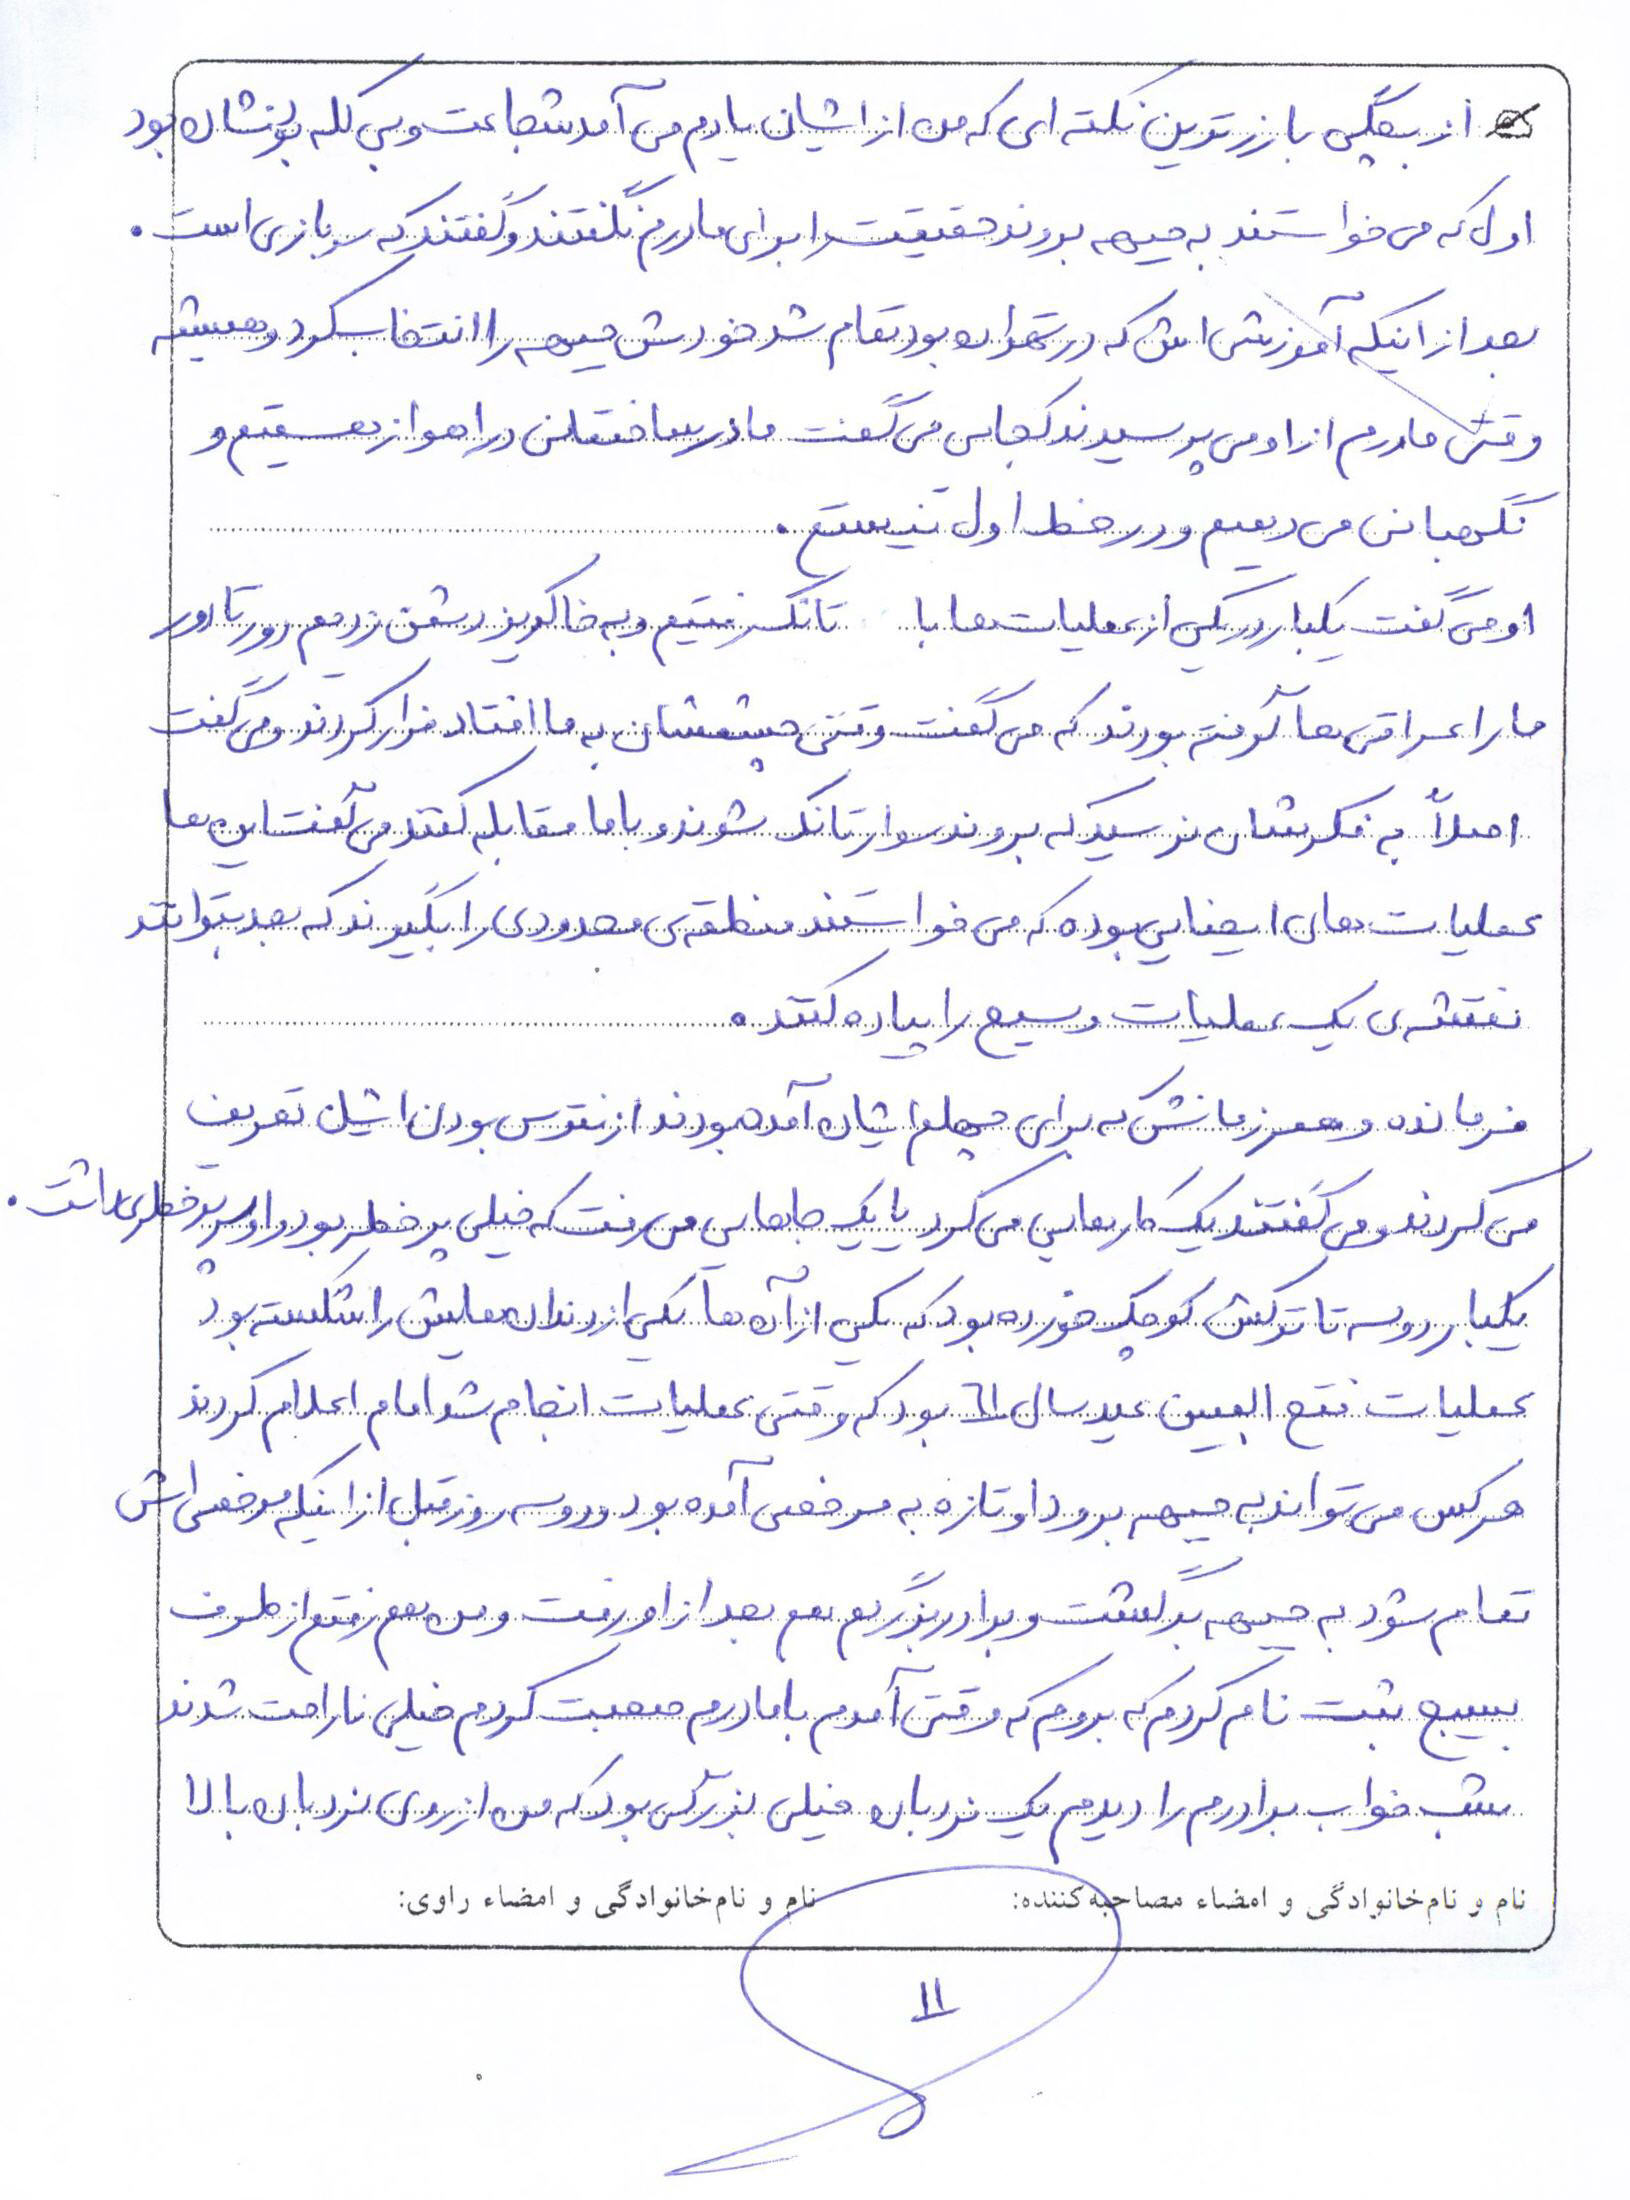 از بچگی بارزترین نکته ای که من از ایشان یادم می آمد شجاعت و بی کله بودنشان بود
اول که می خواستند به جبهه بروند حقیقت را برای مادرم نگفتند و گفتند که سربازی است.
بعد از اینکه آموزشی اش که در تهران بود تمام شد خودش جبهه را انتخاب کرد و همیشه
وقتی مادرم از او می پرسیدند کجایی می گفت ما در ساختمان در اهواز هستیم و
نگهبانی می دهیم و در خط اول نیستیم.
او می گفت یکبار در یکی از عملیات ها با تانک رفتیم و به خاکریز دشمن زدیم دور تا دور
ما را عراقی ها گرفته بودند که می گفت وقتی چشمشان به ما افتاد فرار کردند و می گفت
اصلاً به فکرشان نرسید که بروند سوار تانک شوند و با ما مقابله کنند می گفت این ها
عملیات های ایضایی بوده که می خواستند منطقه ی محدودی را بگیرند که بعد بتوانند
نقشه ی یک عملیات وسیع را پیاده کنند.
فرمانده و همرزمانش که برای چهلم ایشان آمده بودند از نترس بودن ایشان تعریف
می کردند و می گفتند یک کارهایی می کرد یا یک جاهایی می رفت که خیلی پر خطر بود و او سر پر خطری داشت.
یکبار دو سه تا ترکش کوچک خورده بود که یکی از آن ها یکی از دندان هایش را شکسته بود
عملیات فتح المبین عید سال ٦١ بود که وقتی عملیات انجام شد امام اعلام کردند
هر کس می تواند به جبهه برود او تازه به مرخصی آمده بود و دو سه روز قبل از اینکه مرخصی اش
تمام شود به جبهه برگشت و برادر بزرگم هم بعد از او رفت و من هم رفتم از طرف
بسیج ثبت نام کردم که بروم که وقتی آمدم با مادرم صحبت کردم خیلی ناراحت شدند
شب خواب برادرم را دیدم یک نردبان خیلی بزرگی بود که من از روی نردبان بالا
نام و نام‌خانوادگی و امضاء مصاحبه‌کننده: نام و نام‌خانوادگی و امضاء راوی:
١١